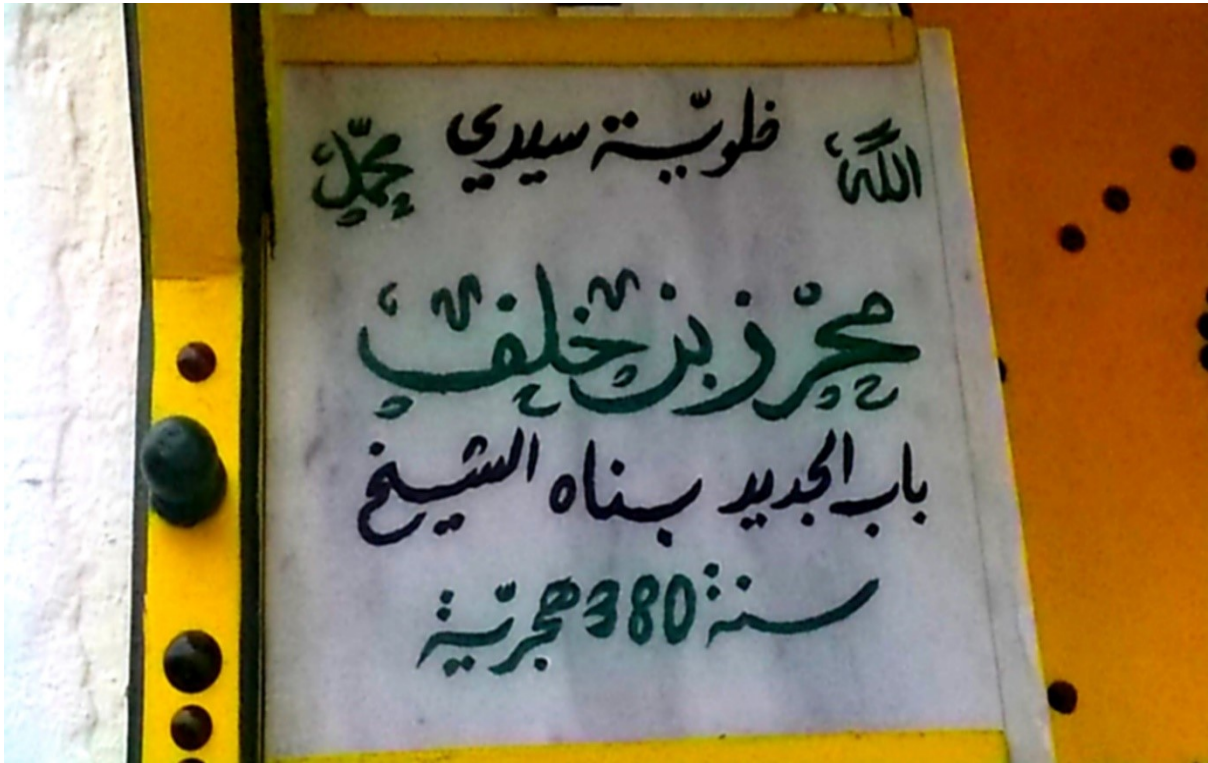 الله خلويّة سيدي محمّد
محرز بن خلف
باب الجديد بناه الشيخ
سنة 380 هجريّة